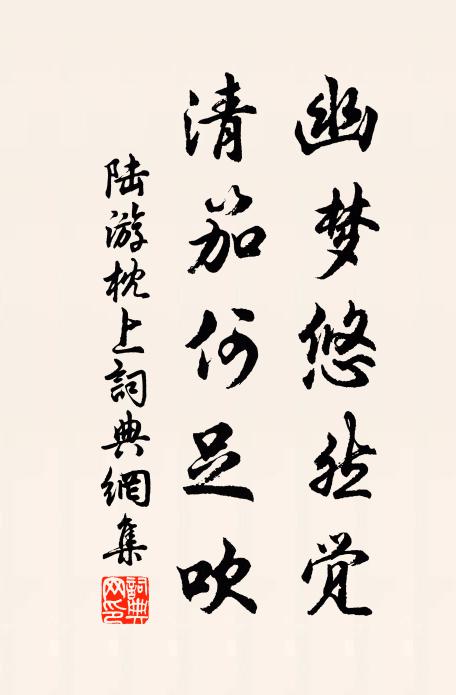 幽梦悠然觉
清笳何足吹
陆游枕上詞典網集
詞典网印